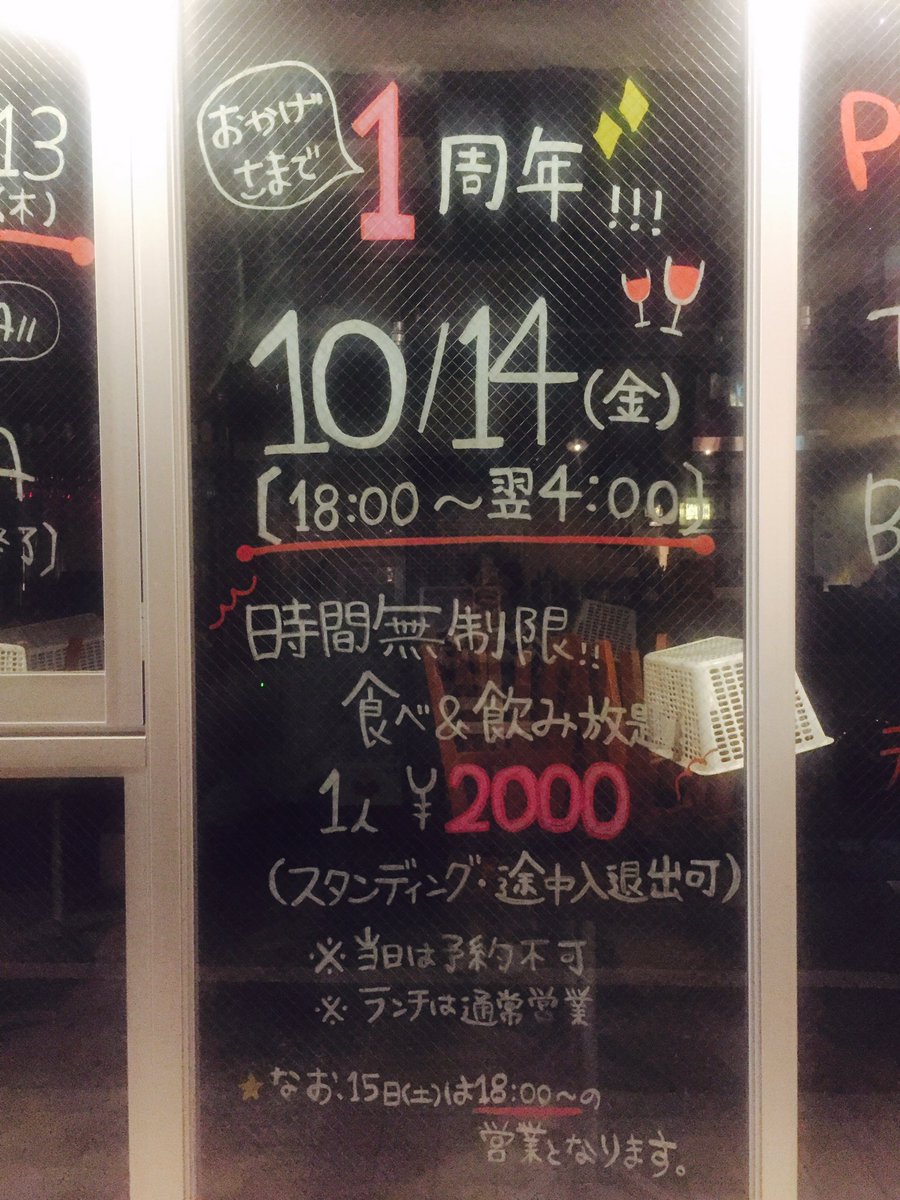 おかげ
さまで
1周年!!!
10/14(金)
[18:00〜翌4:00]
時間無制限!!
食べ&飲み放題
1人 ¥2000
(スタンディング・途中入退出可)
※当日は予約不可
※ランチは通常営業
★なお、15日(土)は18:00〜の
営業となります。
13
(木)